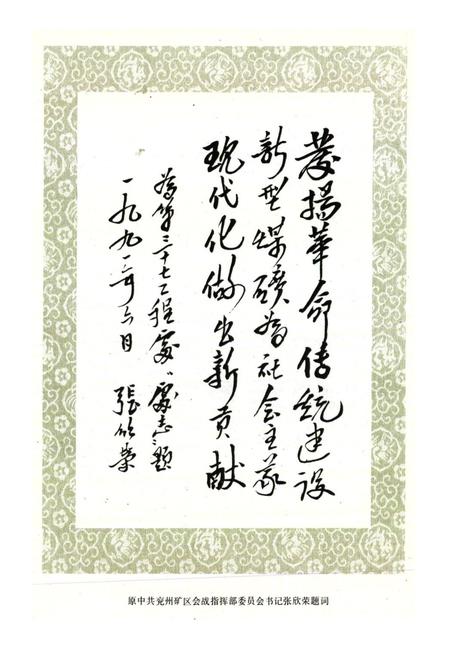 發揚革命传统建设
新型煤礦為社会主義
现代化做出新贡献
為第三十七工程處《處志》题
一九九二年六月 張欣榮
原中共兖州矿区会战指挥部委员会书记张欣荣题词